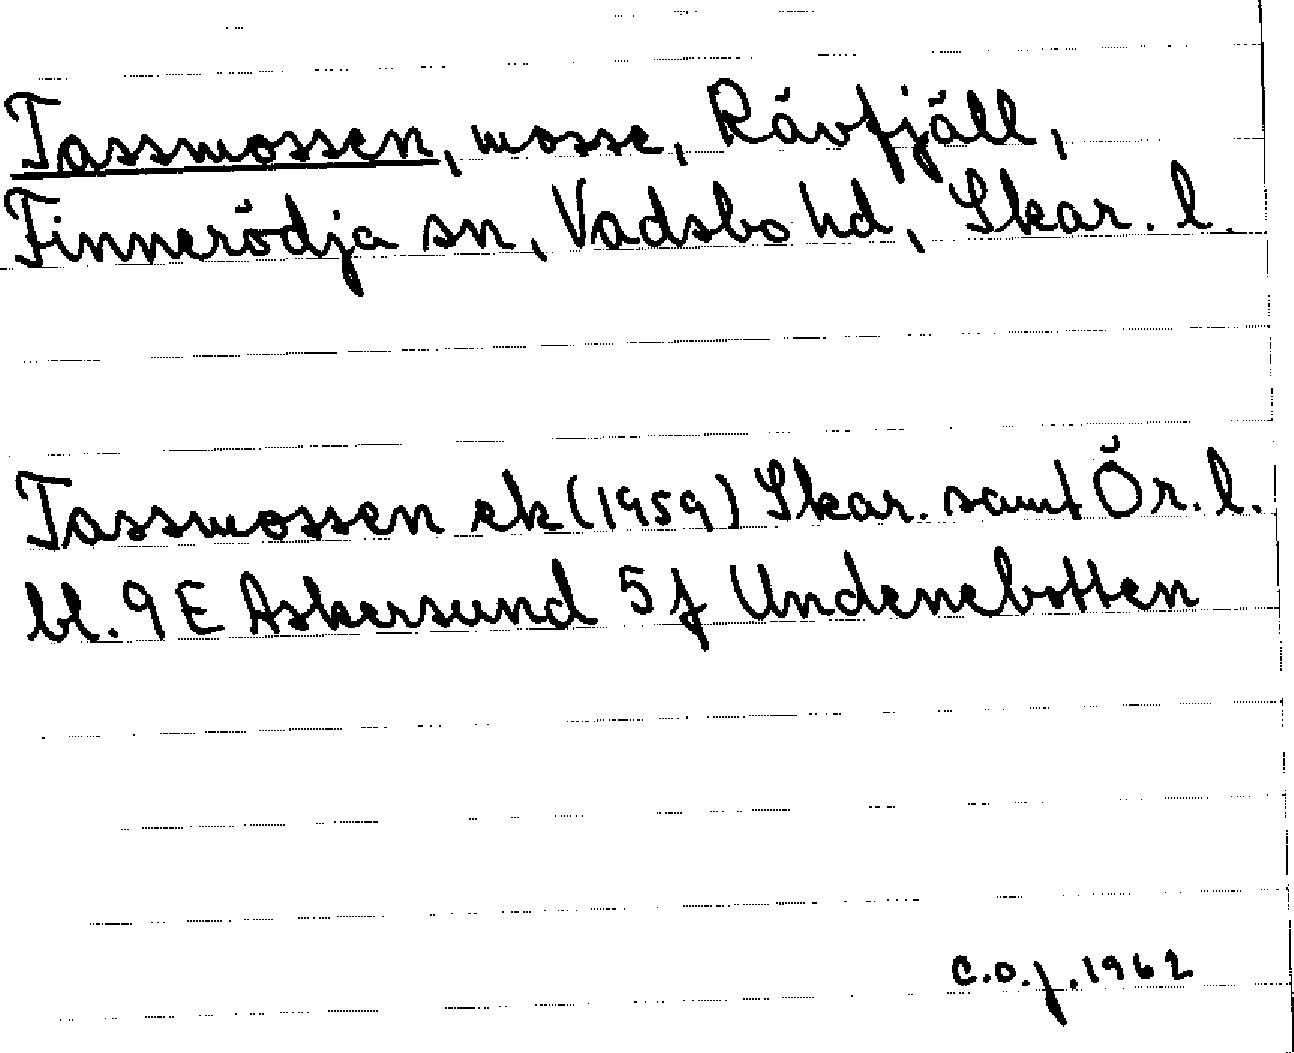 Tassmossen, mosse, Rävfjäll,
Finnerödja sn, Vadsbo hd, Skar. l.
Tassmossen ek (1959) Skar. samt Ör. l.
bl. 9 E Askersund 5 f Undenebotten
C.O.J. 1962